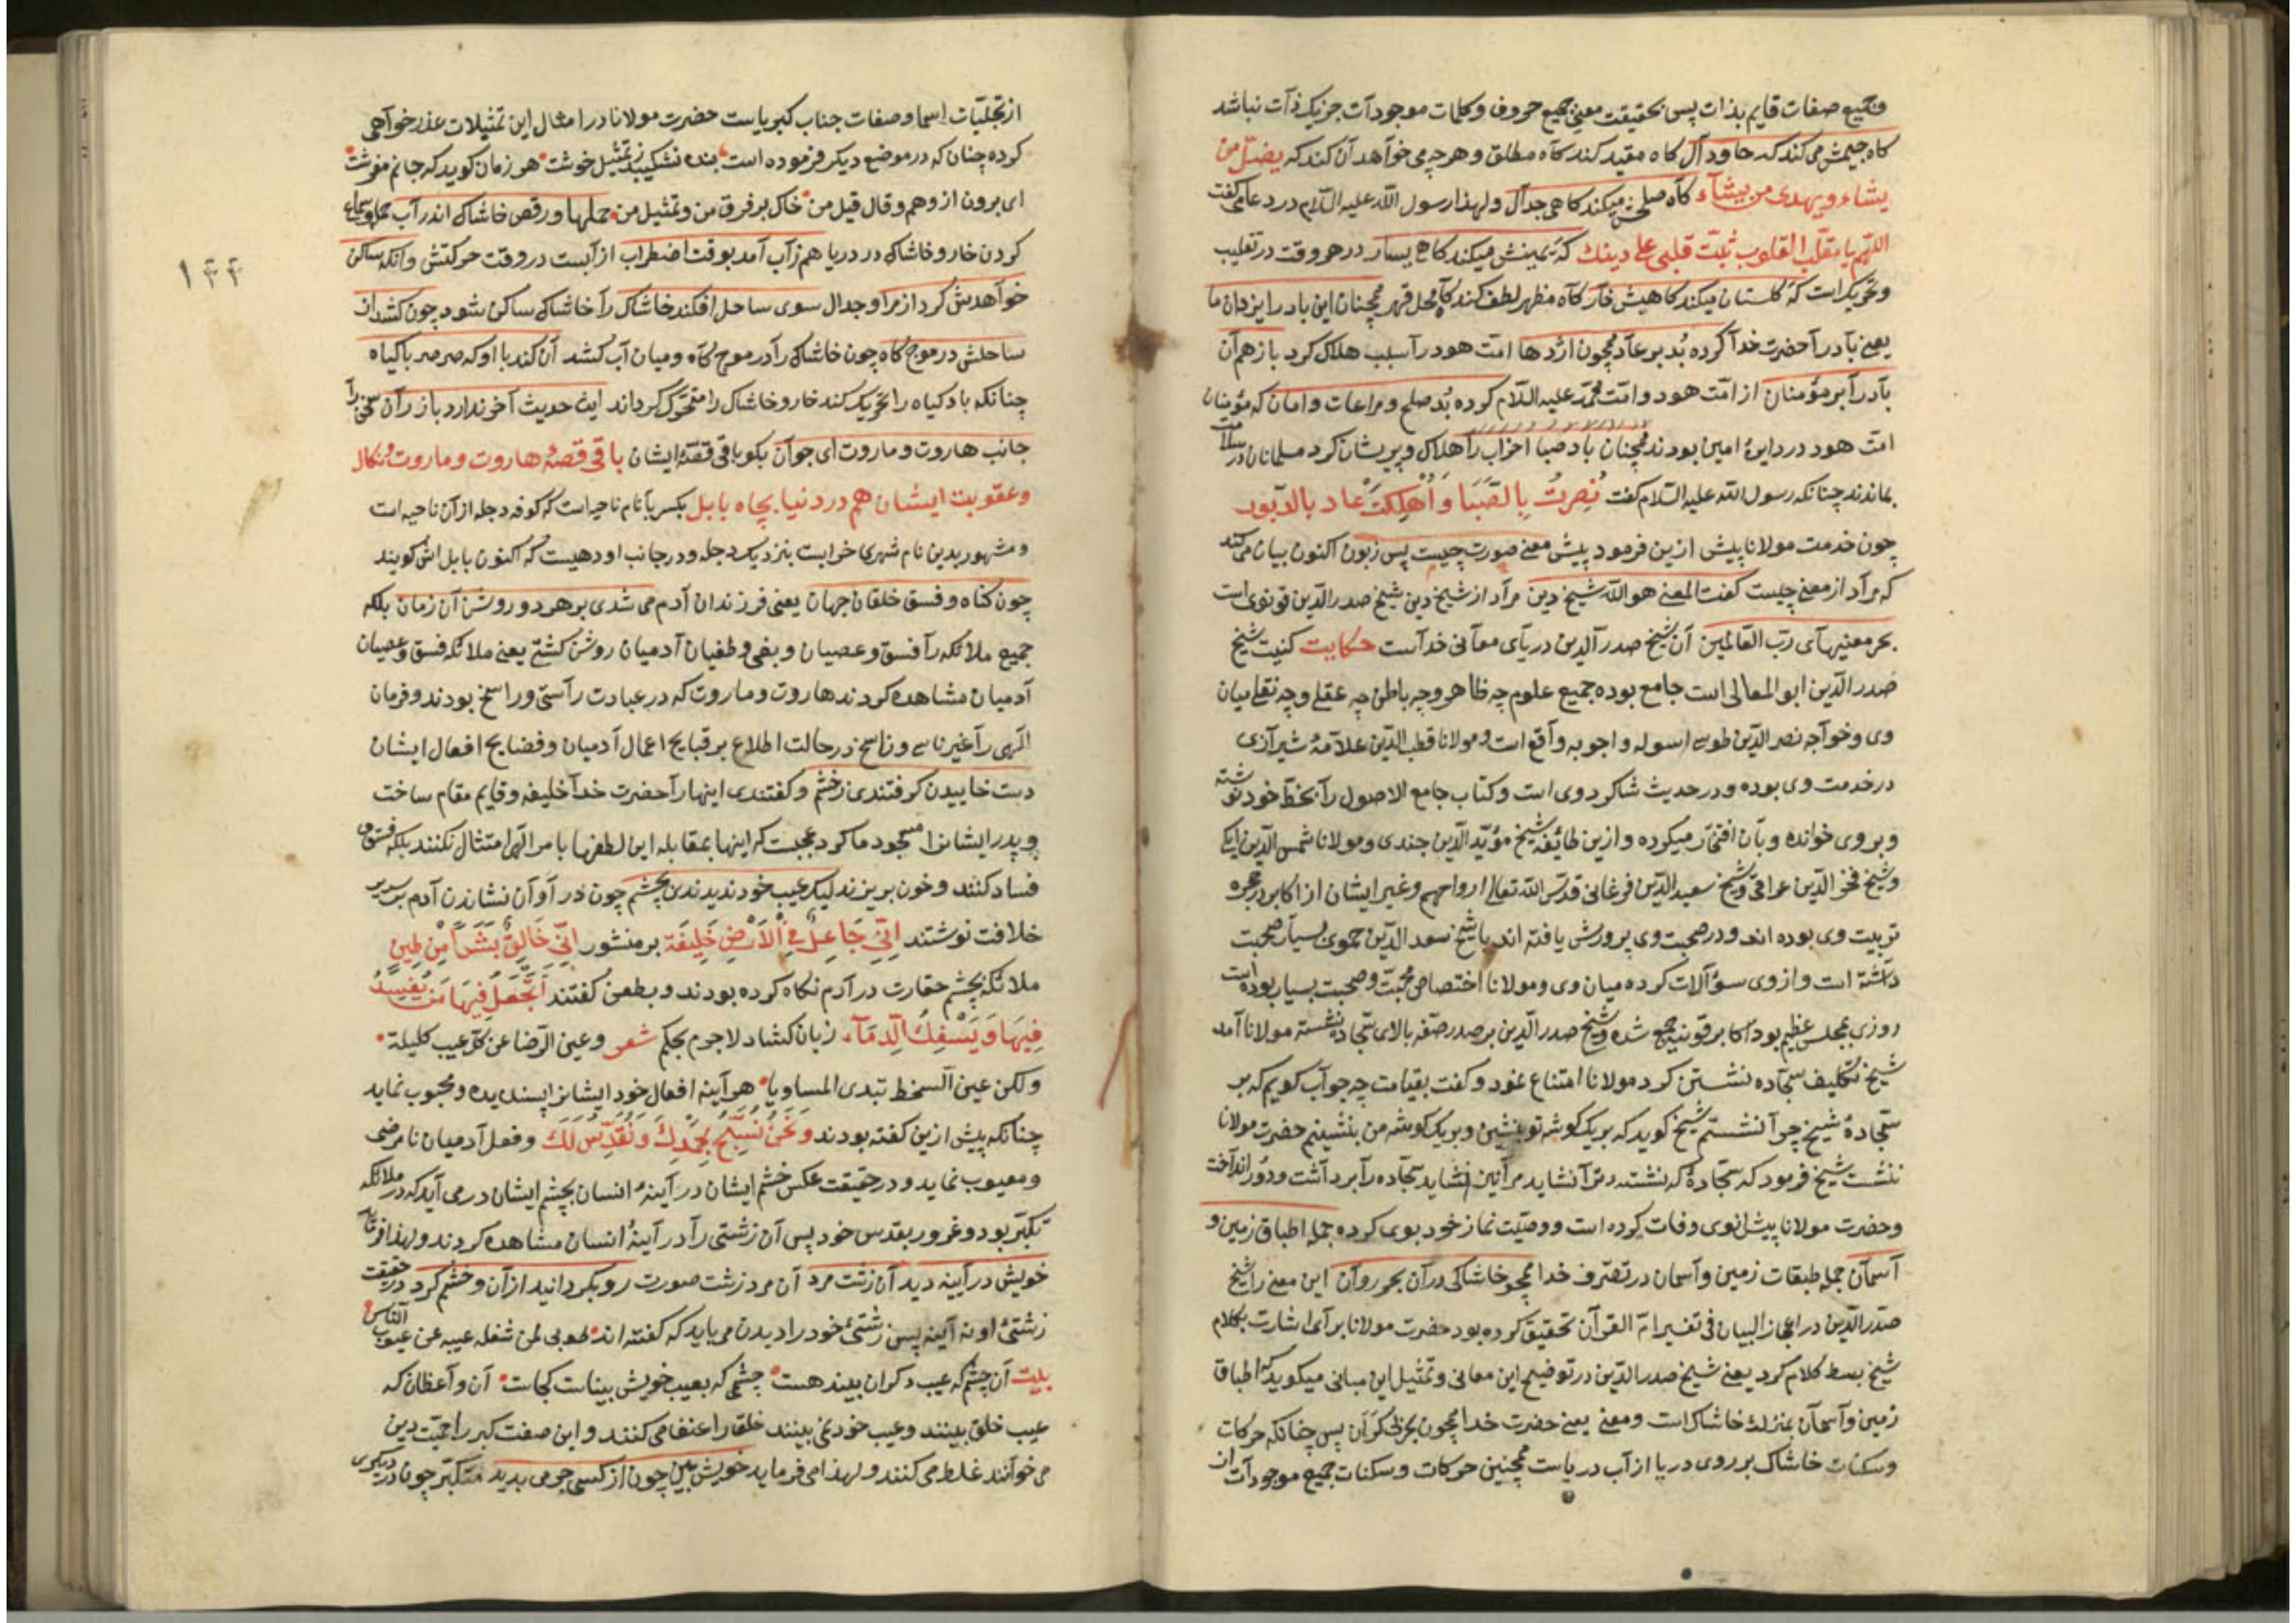 وجمیع صفات قایم بذات پس بحقیقت معنئ جمیع حروف وکلمات موجودآت جز یک ذآت نباشد
کاه جیمش می کند که حا ود آل کاه مقید کند کآه مطلق و هر چه می خوآهد آن کند که یضلّ من
یشاء ویهدی من یشآء کآه صلحش میکند کاهی جدآل ولهذا رسول الله علیه السّلام در دعا می کفت
اللّهم یا مقلّب القلوب ثبّت قلبی علی دینك که یمینش میکند کاه یسار در هر وقت در تقلیب
وتحریک است که کلستان میکند کاهیش خآر کآه مظهر لطف کند کآه محل قهر همچنان این باد را یزدان ما
یعنی بآد رآ حضرت خدآ کرده بُد بر عآد همچون اژدها امّت هود رآ سبب هلاک کرد باز هم آن
بآد رآ بر مؤمنان از امّت هود وامّت محمّد علیه السّلام کرده بُد صلح و مراعات وامان که مؤمنان
امّت هود در دایرۀ امین بودند همچنان باد صبا احزاب رآ هلاک و پریشان کرد مسلمانان در سلامت
بماندند چنانکه رسول الله علیه السّلام کفت نُصِرتُ بِالصَّبَا وَاُهْلِکَتْ عَاد بالدّبور
چون خدمت مولانا پیش ازین فرمود پیش معنی صورت چیست پس زبون اکنون بیان می کند
که مرآد از معنی چیست کفت المعنی هو الله شیخ دین مرآد از شیخ دین شیخ صدر الدّین قونوی است
بحر معنیهآی ربّ العالمین آن شیخ صدر آلدین دریآی معآنی خدآست حکایت کنیت شیخ
صدر الدّین ابو المعالی است جامع بوده جمیع علوم چه ظاهر وچه باطن چه عقلی وچه نقلی میان
وی وخوآجه نصر الدّین طوسی اسوله واجوبه وآقع است ومولانا قطب الدّین علاّمۀ شیرآزی
در خدمت وی بوده ودر حدیث شاکرد وی است وکتاب جامع الاصول رآ بخطّ خود نوشته
وبر وی خوانده وبآن افتخآر میکرده وازین طائفه شیخ مؤیّد الدّین جندی ومولانا شمس الدّین ایکی
وشیخ فخر الدّین عراقی وشیخ سعید الدّین فرغانی قدّس الله تعالی ارواحهم وغیر ایشان از اکابر در حجره
تربیت وی بوده اند ودر صحبت وی پرورش یافته اند با شیخ سعد الدّین حموی بسیآر صحبت
دآشته است واز وی سؤآلات کرده میان وی ومولانا اختصاص محبّت وصحبت بسیار بوده است
روزی مجلس عظیم بود اکابر قونیه جمع شده وشیخ صدر الدّین بر صدر صفّه بالای سجّاده نشسته مولانا آمد
شیخ تکلیف سجّاده نشستن کرد مولانا امتناع نمود وکفت بقیامت چه جوآب کویم که بر
سجّادۀ شیخ چرآ نشستم شیخ کوید که بریک کوشه تو بنشین وبریک کوشه من بنشینم حضرت مولانا
ننشست شیخ فرمود که سجّادۀ که نشستن ترآ نشاید مرآ نیز نشاید سجّاده رآ بردآشت ودور اندآخت
وحضرت مولانا پیش از وی وفات کرده است ووصیّت نماز خود بوی کرده جمله اطباق زمین و
آسمآن جمله طبقات زمین وآسمان در تصرّف خدا همچو خاشاکی در آن بحر روآن این معنی رآ شیخ
صدر الدّین در اعجاز البیان فی تفسیر امّ القرآن تحقیق کرده بود حضرت مولانا برآی اشارت بکلام
شیخ بسط کلام کرد یعنی شیخ صدر الدّین در توضیح این معانی وتمثیل این مبانی میکوید که اطباق
زمین وآسمآن بمنزلۀ خاشاک است ومعنی یعنی حضرت خدا همچون بحر بی کرآن پس چنانکه حرکات
وسکنات خاشاک بر روی دریا از آب دریاست همچنین حرکات وسکنات جمیع موجودآت از
از تجلّیّات اسما وصفات جناب کبریاست حضرت مولانا در امثال این تمثیلات عذر خوآهی
کرده چنان که در موضع دیکر فرموده است بنده نشکیبد ز تمثیل خوشت هر زمان کوید که جانم مفرشت
ای برون از وهم وقال قیل من خاک بر فرق من وتمثیل من حملها ورقص خاشاک اندر آب حمل وسماع
کردن خار وخاشاک در دریا هم زآب آمد بوقت اضطراب از آبست در وقت حرکتش وانکه ساکن
خوآهدش کرد از مرا وجدال سوی ساحل افکند خاشاک را خاشاک ساکن شود چون کشد از
ساحلش در موج کاه چون خاشاک رآ در موج کآه ومیان آب کشد آن کند با او که صرصر با کیاه
چنانکه باد کیاه را تحریک کند خار وخاشاک را متحرّک کرداند این حدیث آخر ندارد باز رآن سخن رآ
جانب هاروت وماروت ای جوآن بکو باقی قصّۀ ایشان باقی قصّۀ هاروت وماروت ونکال
وعقوبت ایشان هم در دنیا بچاه بابل بکسر با نام ناحیه است که کوفه دجله از آن ناحیه است
ومشهور بدین نام شهری خرابست بنزدیک دجله ودر جانب او دهیست که اکنون بابل اش کویند
چون کناه وفسق خلقان جهان یعنی فرزندان آدم می شدی بر هر دو روشن آن زمان بلکه
جمیع ملائکه رآ فسق وعصیان وبغی وطغیان آدمیان روشن کشتی یعنی ملائکه فسق وعصیان
آدمیان مشاهده کردند هاروت وماروت که در عبادت رآستی وراسخ بودند وفرمان
الهی رآ غیر ناسی وناسخ در حالت اطلاع بر قبایح اعمال آدمیان وفضایح افعال ایشان
دست خاییدن کرفتندی زخشم وکفتندی اینها رآ حضرت خدآ خلیفه وقایم مقام ساخت
وپدر ایشانرا مسجود ما کرد عجبست که اینها بمقابله این لطفها بامر الهی امتثال نکنند بلکه فسق و
فساد کنند وخون بریزند لیک عیب خود ندیدندی بچشم چون در آوآن نشاندن آدم بر سریر
خلافت نوشتند اِنّی جَاعِلٌ فِی الْاَرْضِ خَلِیفَة بر منشور اِنّی خَالِقٌ بَشَراً مِنْ طِینٍ
ملائکه بچشم حقارت در آدم نکاه کرده بودند وبطعن کفتند اَتَجْعَلُ فِیهَا مَنْ یُفْسِدُ
فِیهَا وَیَسْفِكُ الدِّمَآءَ زبان کشاد لاجرم بحکم شعر وعین الرّضا عن کلّ عیب کلیلة
ولکن عین السخط تبدی المساویا هر آینه افعال خود ایشانرا پسندیده ومحبوب نماید
چنانکه پیش ازین کفته بودند وَنَحْنُ نُسَبِّحُ بِحَمْدِكَ وَنُقَدِّسُ لَكَ وفعل آدمیان نامرضی
ومعیوب نماید ودر حقیقت عکس خشم ایشان در آینۀ انسان بچشم ایشان در می آید که در ملائکه
تکبّر بود وغرور بقدس خود پس آن زشتی رآ در آینۀ انسان مشاهده کردند ولهذا فرمآید
خویش در آیینه دید آن زشت مرد آن مرد زشت صورت رو بکردانید از آن وخشم کرد در حقیقت
زشتئ او نه آیینه پس زشتئ خود را دیدن می باید که کفته اند طوبی لمن شغله عیبه عن عیوب الناس
بیت آن چشم که عیب دکران بیند هست چشمی که بعیب خویش بیناست کجاست آن وآعظان که
عیب خلق بینند وعیب خود نمی بینند خلقرا عنفا می کنند واین صفت کبر را حمیّت دین
می خوآنند غلط می کنند ولهذا می فرماید خویش بین چون از کسی جرمی بدید متکبّر چون در دیکری
۱۴۴